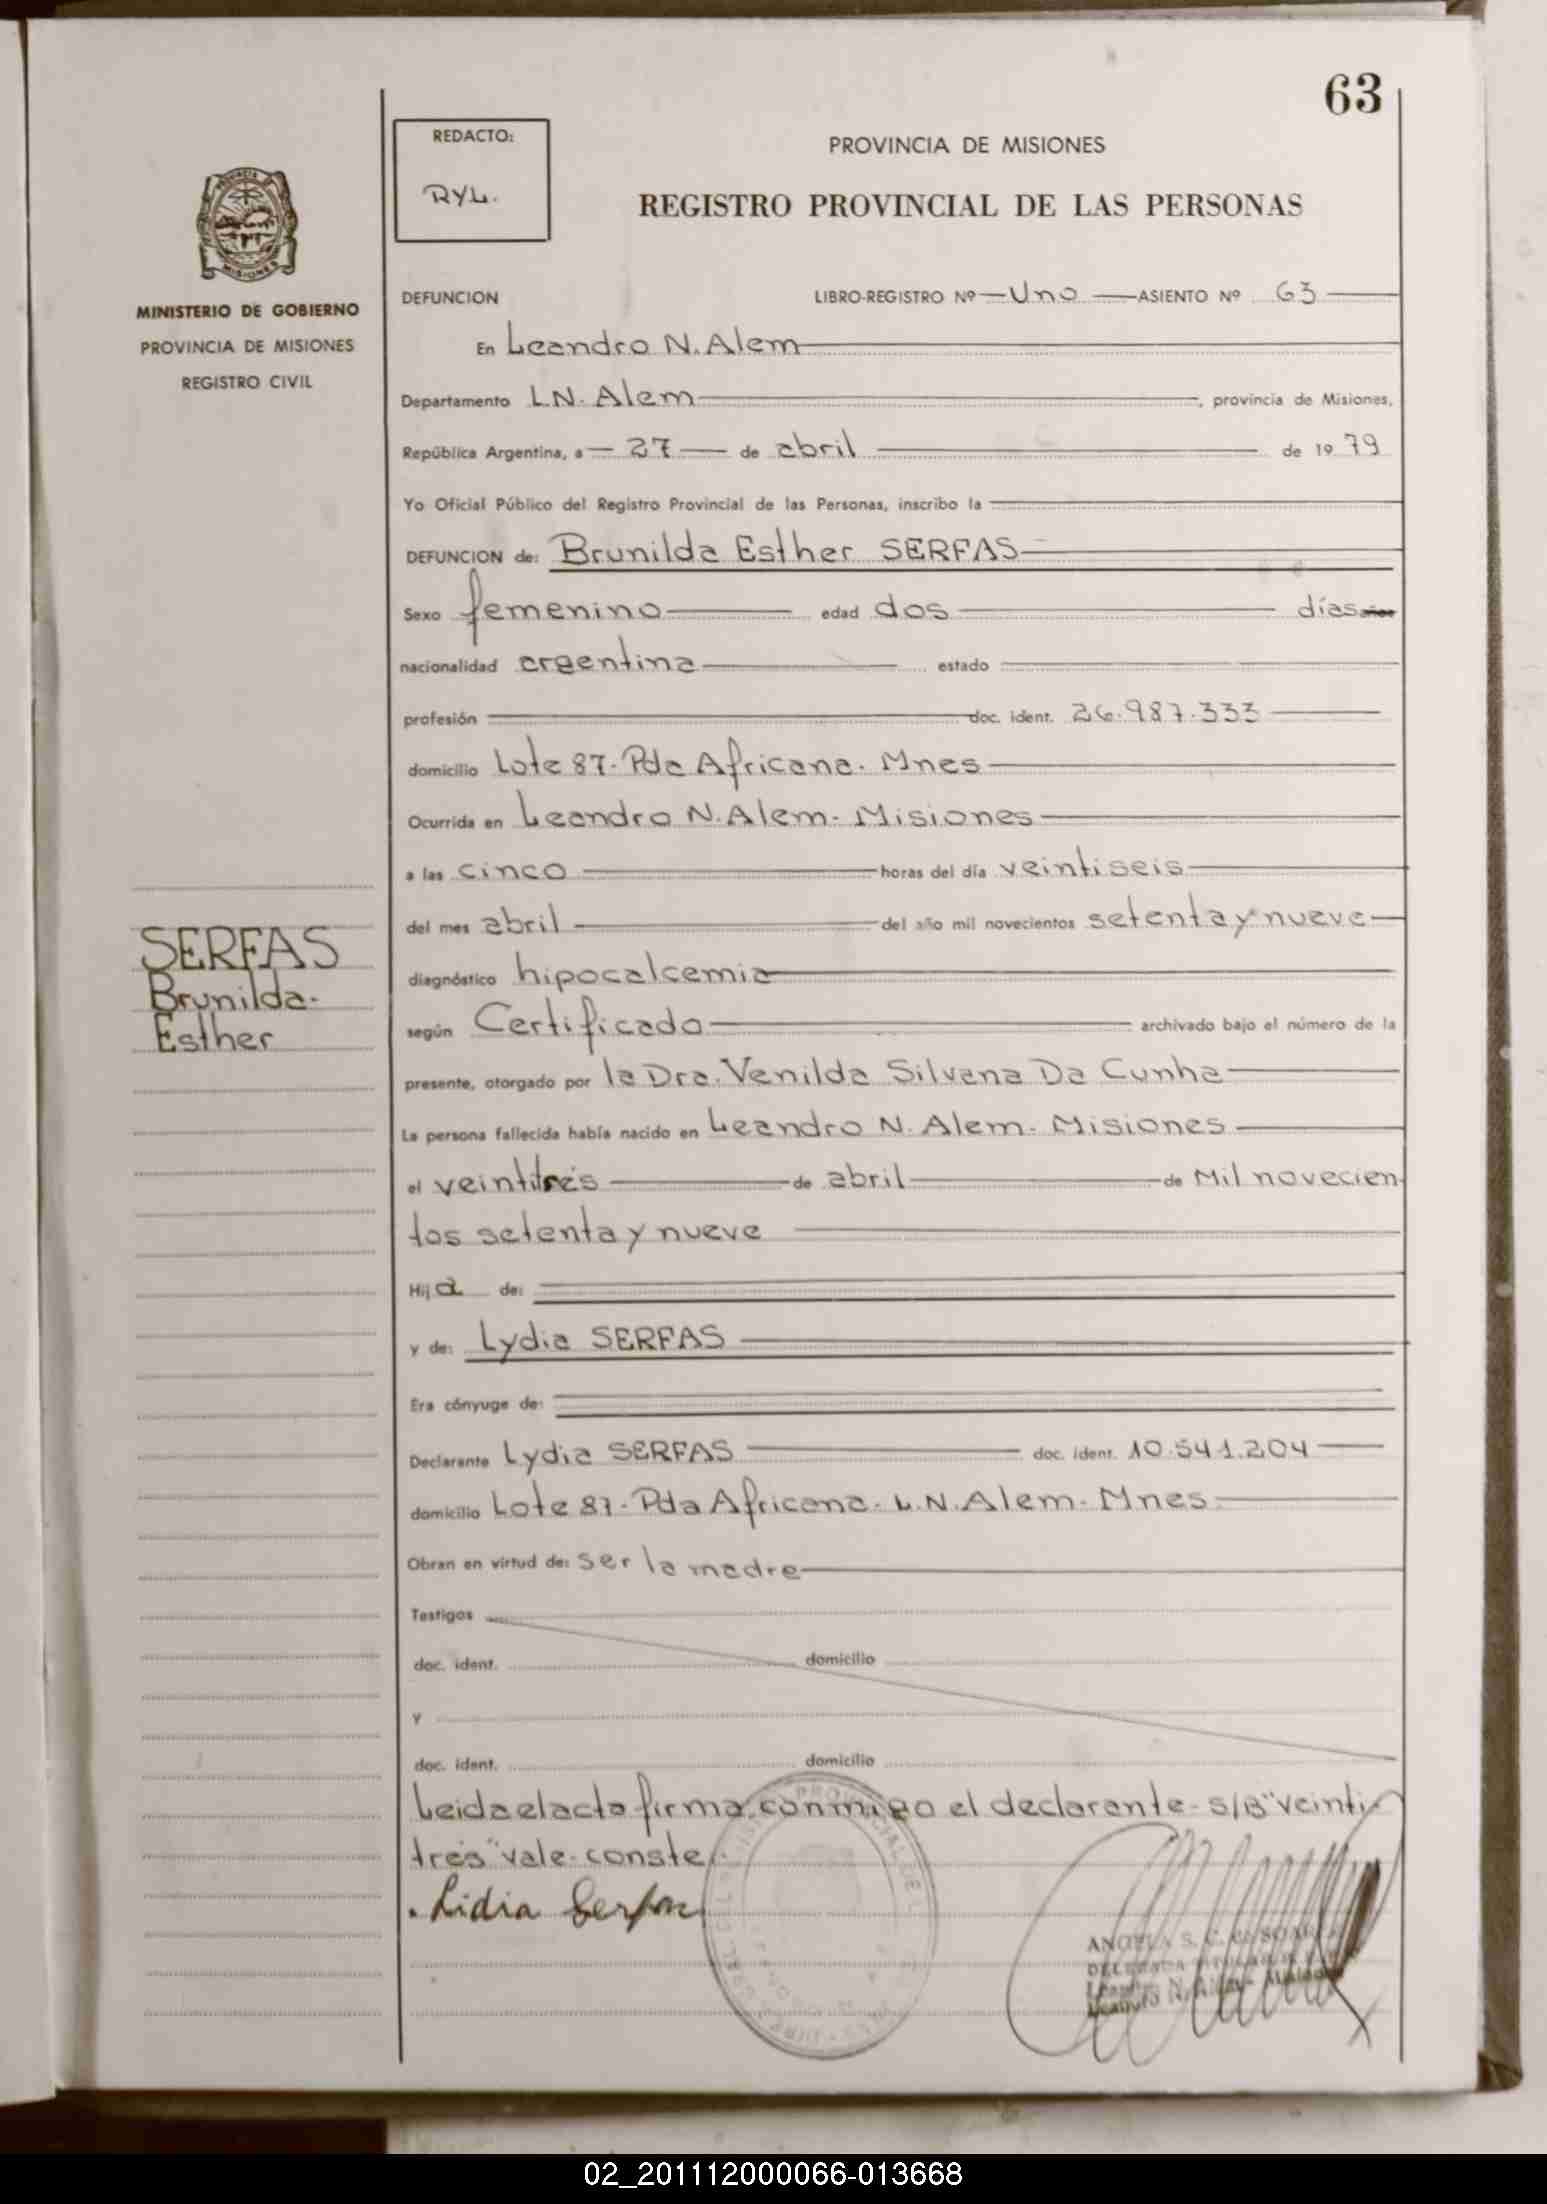 63
REDACTO:
RYL.
PROVINCIA DE MISIONES
REGISTRO PROVINCIAL DE LAS PERSONAS
MINISTERIO DE GOBIERNO
PROVINCIA DE MISIONES
REGISTRO CIVIL
DEFUNCION LIBRO-REGISTRO Nº Uno ASIENTO Nº 63
En Leandro N. Alem
Departamento LN. Alem, provincia de Misiones,
República Argentina, a 27 de abril de 19 79
Yo Oficial Público del Registro Provincial de las Personas, inscribo la
DEFUNCION de: Brunilda Esther SERFAS
Sexo femenino edad dos días años
nacionalidad argentina estado
profesión doc. ident. 26.987.333
domicilio Lote 87. Pda Africana. Mnes
Ocurrida en Leandro N. Alem. Misiones
a las cinco horas del día veintiseis
del mes abril del año mil novecientos setenta y nueve
diagnóstico hipocalcemia
según Certificado archivado bajo el número de la
presente, otorgado por la Dra. Venilda Silvana Da Cunha
La persona fallecida había nacido en Leandro N. Alem. Misiones
el veintitrés de abril de Mil novecien
tos setenta y nueve
Hija de:
y de: Lydia SERFAS
Era cónyuge de:
Declarante Lydia SERFAS doc. ident. 10.541.204
domicilio Lote 87. Pda Africana. L.N. Alem. Mnes
Obran en virtud de: ser la madre
Testigos
doc. ident. domicilio
y
doc. ident. domicilio
Leida el acta firma conmigo el declarante. S/B "veinti
trés" vale. conste.
Lidia Serfas
SERFAS
Brunilda.
Esther
ANGELA S. C.
Leandro N. Alem - Misiones
02_201112000066-013668